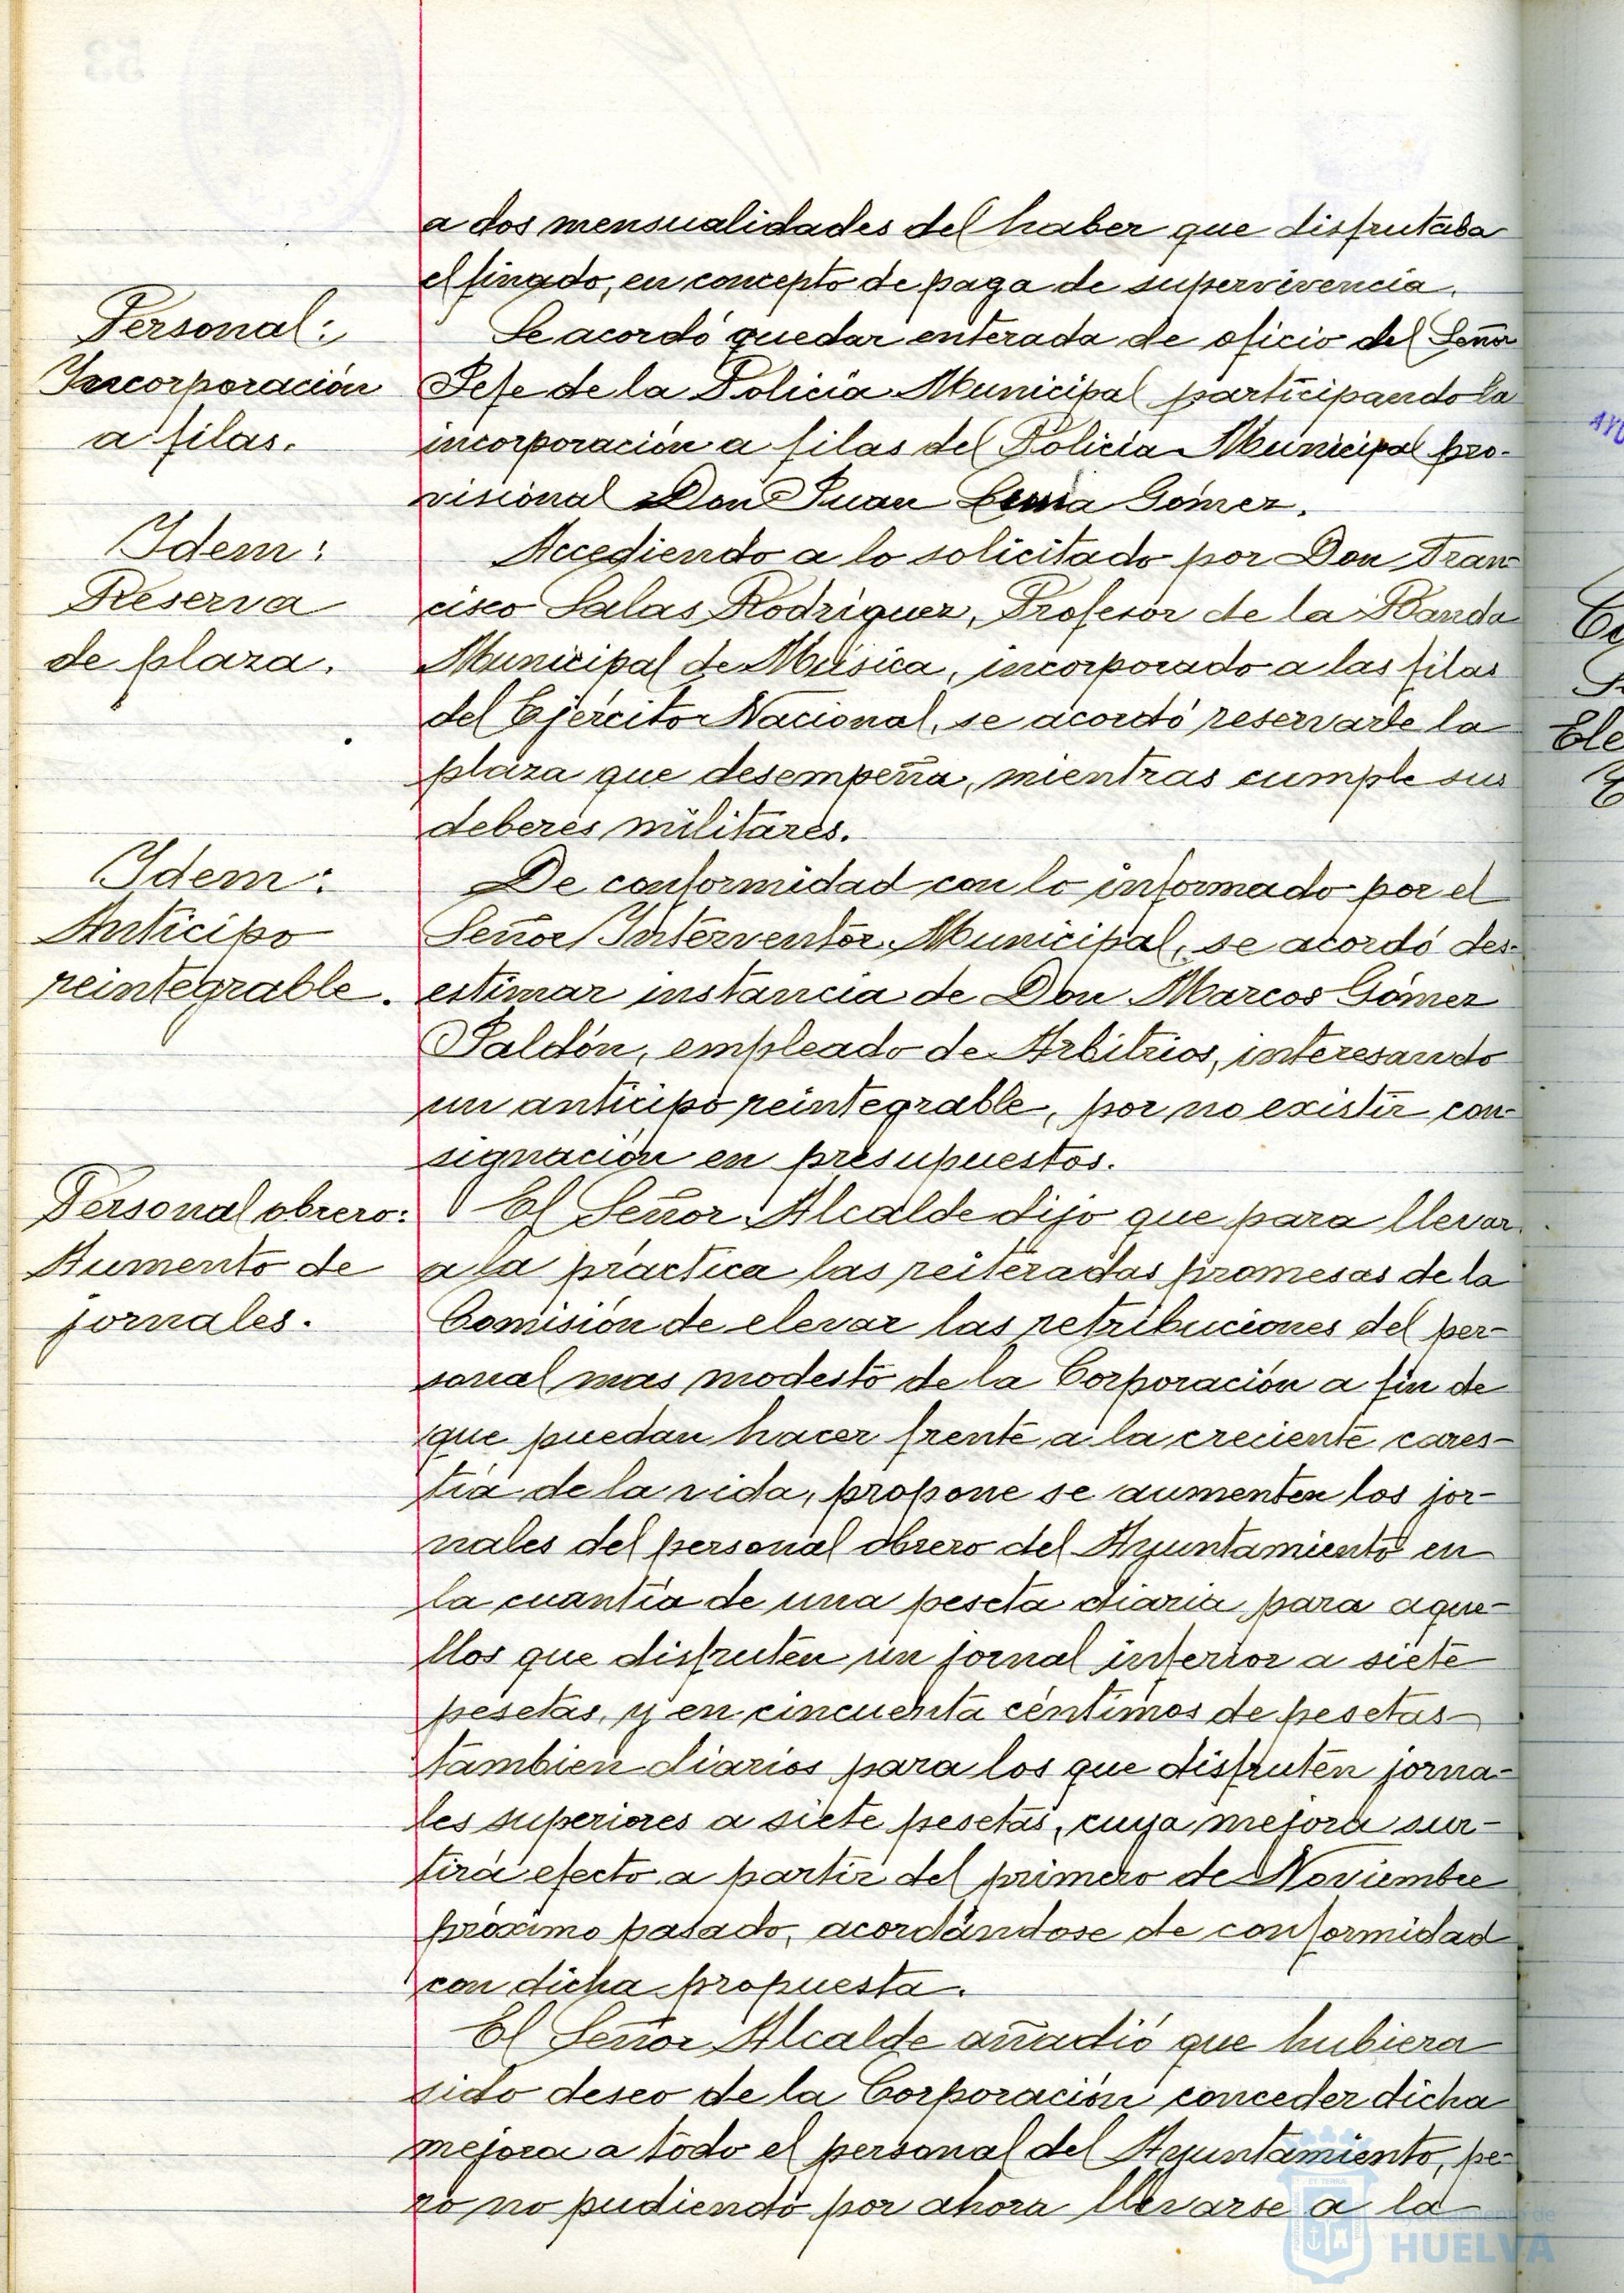 a dos mensualidades del haber que disfrutaba
el finado, en concepto de paga de supervivencia.
Personal:
Incorporación
a filas.
Se acordó quedar enterada de oficio del Señor
Jefe de la Policía Municipal participando la
incorporación a filas del Policía Municipal pro-
visional Don Juan Gómez.
Idem:
Reserva
de plaza.
Accediendo a lo solicitado por Don Fran-
cisco Salas Rodriguez, Profesor de la Banda
Municipal de Música, incorporado a las filas
del Ejército Nacional, se acordó reservarle la
plaza que desempeña, mientras cumple sus
deberes militares.
Idem:
Anticipo
reintegrable.
De conformidad con lo informado por el
Señor Interventor Municipal, se acordó des-
estimar instancia de Don Marcos Gómez
Saldón, empleado de Arbitrios, interesando
un anticipo reintegrable, por no existir con-
signación en presupuestos.
Personal obrero:
Aumento de
jornales.
El Señor Alcalde dijo que para llevar
a la práctica las reiteradas promesas de la
Comisión de elevar las retribuciones del per-
sonal mas modesto de la Corporación a fin de
que puedan hacer frente a la creciente cares-
tía de la vida, propone se aumenten los jor-
nales del personal obrero del Ayuntamiento en
la cuantía de una peseta diaria para aque-
llos que disfruten un jornal inferior a siete
pesetas, y en cincuenta céntimos de pesetas
tambien diarios para los que disfruten jorna-
les superiores a siete pesetas, cuya mejora sur-
tirá efecto a partir del primero de Noviembre
próximo pasado, acordándose de conformidad
con dicha propuesta.
El Señor Alcalde añadió que hubiera
sido deseo de la Corporación conceder dicha
mejora a todo el personal del Ayuntamiento, pe-
ro no pudiendo por ahora llevarse a la
HUELVA